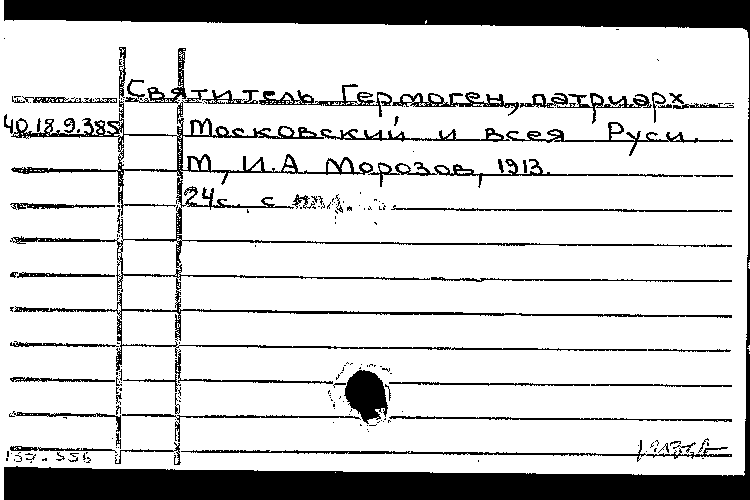 Святитель Гермоген, патриарх
40.18.9.385 Московский и всея Руси.
М, И.А. Морозов, 1913.
24с. с илл.